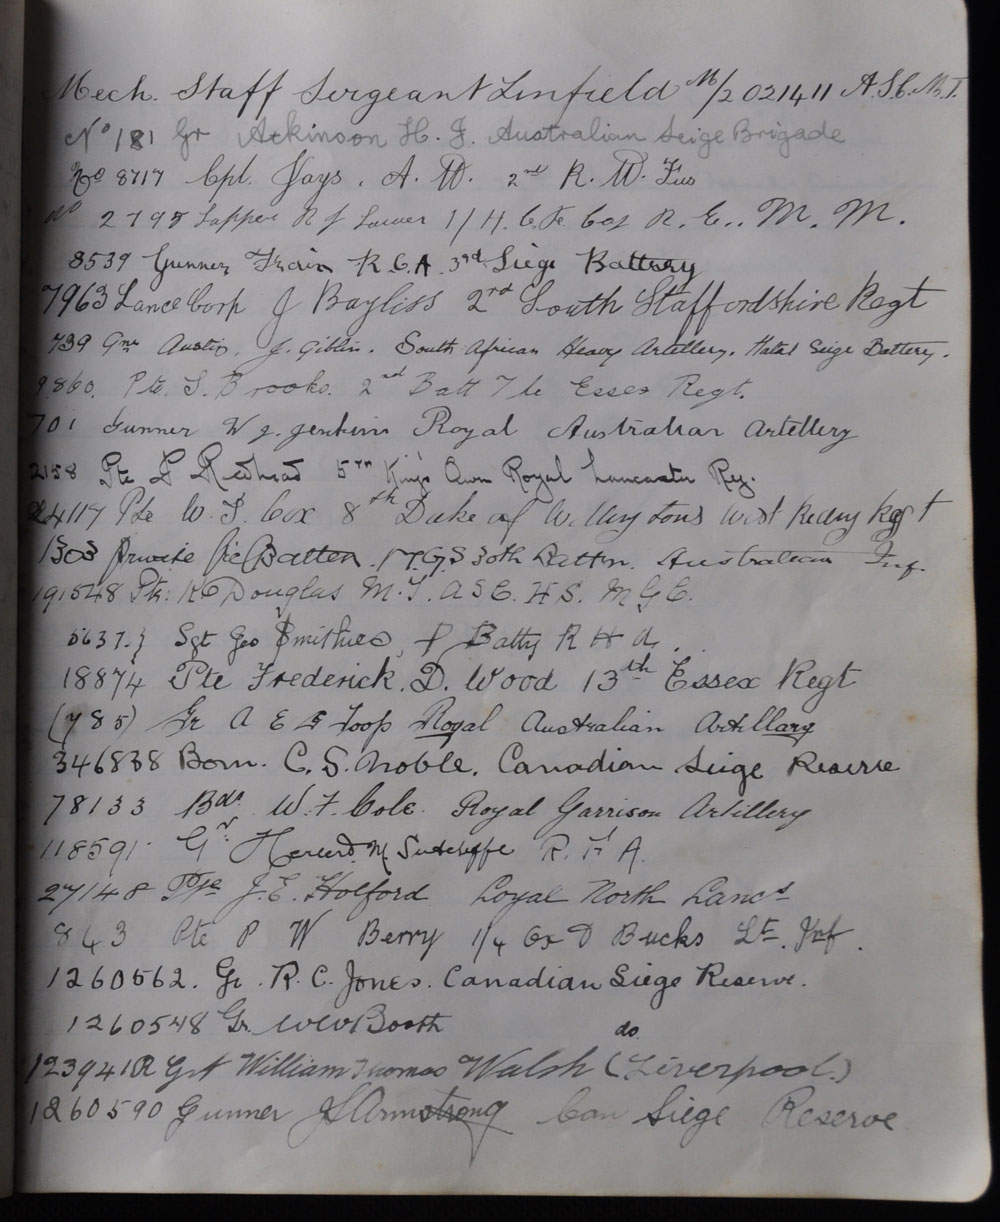 Mech. Staff Sergeant Linfield M/2 021411 A.S.C. M.T.
No 181 Gr Atkinson H. J. Australian Seige Brigade
No 8717 Cpl. Jays. A. W. 2nd R. W. Fus
No 2795 Sapper R J Lower 1/H.C.F. Coy R. E.. M. M.
8539 Gunner Train R.G.A. 3rd Siege Battery
7963 Lance Corp J Bayliss 2nd South Staffordshire Regt
739 Gnr J. Giblin. South African Heavy Artillery. Natal Seige Battery.
9860. Pte. S. Brooks. 2nd Batt The Essex Regt.
701 Gunner W J. Jenkins Royal Australian Artillery
2158 Pte Redhead 5th King's Own Royal Lancaster Reg.
24117 Pte W. S. Cox 8th Duke of Wellingtons West Reding Regt
1303 Private Batten. 30th Battn. Australian Inf.
191548 Pte: K C Douglas M.T. A S C. H S. M G C.
5637.} Sgt Geo Smithies, P Batty R H A.
18874 Pte Frederick. D. Wood 13th Essex Regt
(785) Gr A E Toop Royal Australian Artillary
346838 Bom. C. S. Noble. Canadian Siege Reserve
78133 Bdr W. F. Cole. Royal Garrison Artillery
118591. Gr M Sutcliffe R. F A.
27148 Pte J. E. Holford Loyal North Lancs
843 Pte P W Berry 1/4 Ox & Bucks Lt. Inf.
1260562. Gr. R. C. Jones. Canadian Siege Reserve.
1260548 Gr. W W Booth do
123941 R Gr William Thomas Walsh (Liverpool.)
1260590 Gunner J S Armstrong Can Siege Reserve